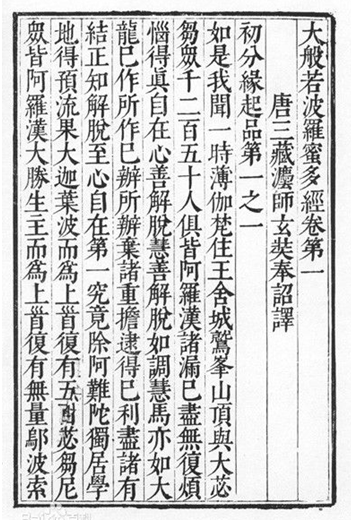 大般若波羅蜜多經卷第一
唐三藏灋師玄奘奉詔譯
初分緣起品第一之一
如是我聞一時薄伽梵住王舍城鷲峯山頂與大苾
芻眾千二百五十人俱皆阿羅漢諸漏巳盡無復煩
惱得眞自在心善解脫慧善解脫如調慧馬亦如大
龍巳作所作巳辦所辦棄諸重擔逮得巳利盡諸有
結正知解脫至心自在第一究竟除阿難陀獨居學
地得預流果大迦葉波而爲上首復有五百苾芻尼
眾皆阿羅漢大勝生主而爲上首復有無量鄔波索